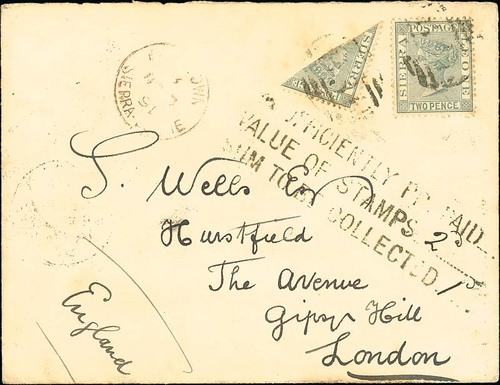 SIERRA LEONE
POSTAGE
TWO PENCE
SIERRA
SIERRA
FFICIENTLY PREPAID
VALUE OF STAMPS 2d
SUM TO BE COLLECTED 1d
S. Wells Esq
Hurstfield
The Avenue
Gipsy Hill
London
England